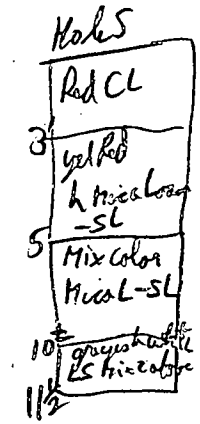 Hole 5
Red CL
3
yel Red
h Mica Loam
-SL
5
Mix Color
Mica L-SL
10
grayesh white
LS Mix Color
11 1/2